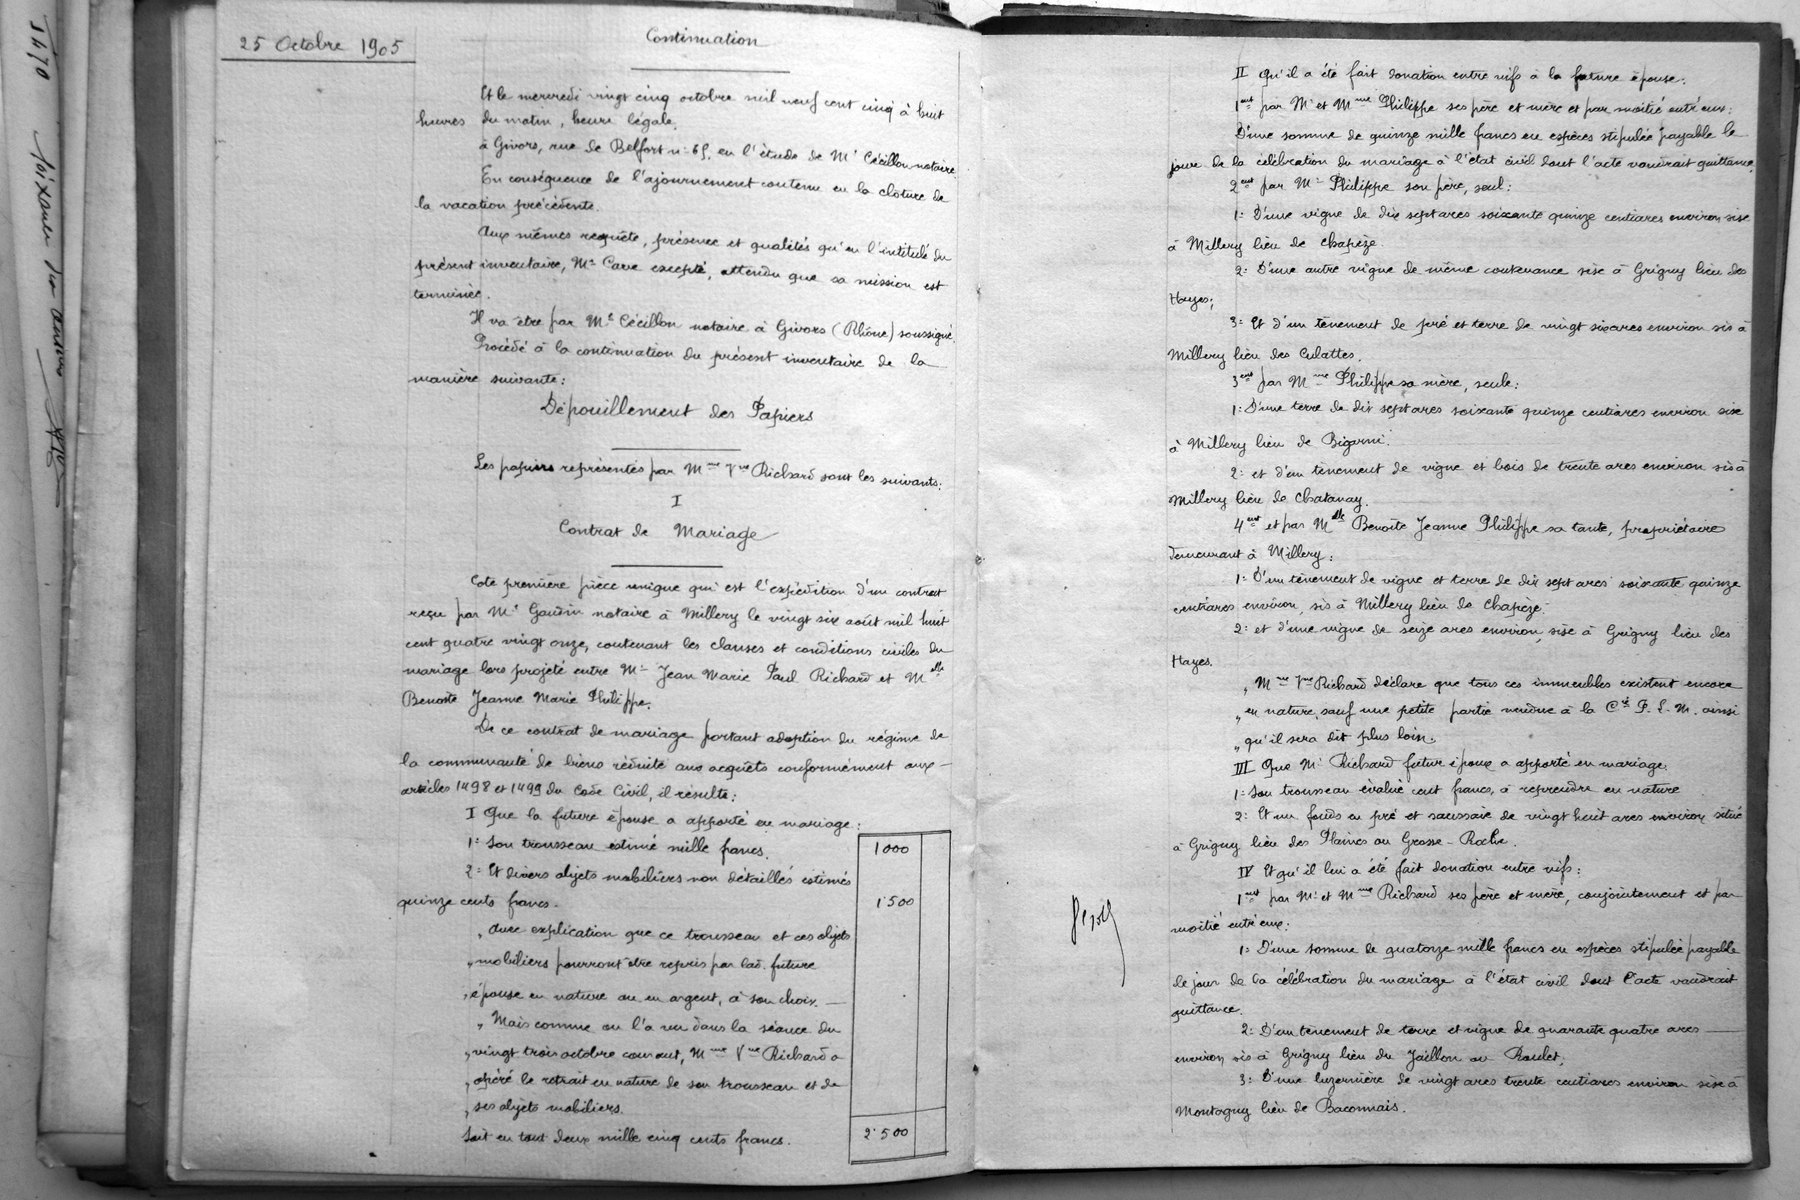 25 Octobre 1905
Continuation
Et le mercredi vingt cinq octobre mil neuf cent cinq à huit
heures du matin, heure légale,
à Givors, rue de Belfort n: 65, en l'étude de Me Cécillon notaire.
En conséquence de l'ajournement contenu en la clôture de
la vacation précédente.
Aux mêmes requête, présence et qualités qu'en l'intitulé du
présent inventaire, Me Cave excepté, attendu que sa mission est
terminée.
Il va être par Me Cécillon notaire à Givors (Rhône) soussigné.
Procédé à la continuation du présent inventaire de la
manière suivante:
Dépouillement des Papiers
Les papiers représentés par Mme Vve Richard sont les suivants:
I
Contrat de Mariage
Cote première pièce unique qui est l'expédition d'un contrat
reçu par Me Gaudin notaire à Millery le vingt six août mil huit
cent quatre vingt onze, contenant les clauses et conditions civiles du
mariage lors projeté entre Mr Jean Marie Paul Richard et Mlle
Benoite Jeanne Marie Philippe.
De ce contrat de mariage portant adoption du régime de
la communauté de biens réduite aux acquêts conformément aux
articles 1498 et 1499 du Code Civil, il résulte:
I Que la future épouse a apporté en mariage:
1: Son trousseau estimé mille francs. 1000
2: Et divers objets mobiliers non détaillés estimés
quinze cents francs. 1500
„ Avec explication que ce trousseau et ces objets
„ mobiliers pourront être repris par lad. future
„ épouse en nature ou en argent, à son choix.
„ Mais comme on l'a vu dans la séance du
„ vingt trois octobre courant, Mme Vve Richard a
„ opéré le retrait en nature de son trousseau et de
„ ses objets mobiliers.
Soit en tout deux mille cinq cents francs. 2500
II Qu'il a été fait donation entre vifs à la future épouse:
1ent par Mr et Mme Philippe ses père et mère et par moitié entr'eux:
D'une somme de quinze mille francs en espèces stipulée payable le
jour de la célébration du mariage à l'état civil dont l'acte vaudrait quittance.
2ent par Mr Philippe son père, seul:
1: D'une vigne de dix sept ares soixante quinze centiares environ sise
à Millery lieu de Chapèze
2: D'une autre vigne de même contenance sise à Grigny lieu des
Hayes;
3: Et d'un tènement de pré et terre de vingt six ares environ sis à
Millery lieu des Culattes.
3ent par Mme Philippe sa mère, seule:
1: D'une terre de dix sept ares soixante quinze centiares environ sise
à Millery lieu de Bigarni.
2: et d'un tènement de vigne et bois de trente ares environ sis à
Millery lieu de Chatanay.
4ent et par Mlle Benoîte Jeanne Philippe sa tante, propriétaire
demeurant à Millery:
1: D'un tènement de vigne et terre de dix sept ares soixante quinze
centiares environ, sis à Millery lieu de Chapèze.
2: et d'une vigne de seize ares environ, sise à Grigny lieu des
Hayes.
„ Mme Vve Richard déclare que tous ces immeubles existent encore
„ en nature, sauf une petite partie vendue à la Cie P. L. M. ainsi
„ qu'il sera dit plus loin.
III Que Mr Richard futur époux a apporté en mariage:
1: Son trousseau évalué cent francs, à reprendre en nature
2: Et un fonds en pré et saussaie de vingt huit ares environ situé
à Grigny lieu des Plaines ou Grosse-Roche.
IV Et qu'il lui a été fait donation entre vifs:
1ent par Mr et Mme Richard ses père et mère, conjointement et par
moitié entr'eux:
1: D'une somme de quatorze mille francs en espèces stipulée payable
le jour de la célébration du mariage à l'état civil dont l'acte vaudrait
quittance.
2: D'un tènement de terre et vigne de quarante quatre ares
environ sis à Grigny lieu du Jaillon ou Roulet,
3: D'une luzernière de vingt ares trente centiares environ sise à
Montagny lieu de Baconnais.